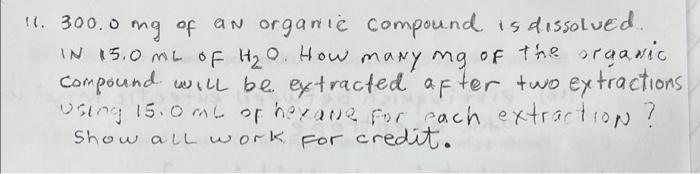 11. 300.0 mg of an organic compound is dissolved.
IN 15.0 mL OF H₂O. How many mg OF the organic
compound will be extracted after two extractions
using 15.0 mL of hexane for each extraction?
Show all work For credit.